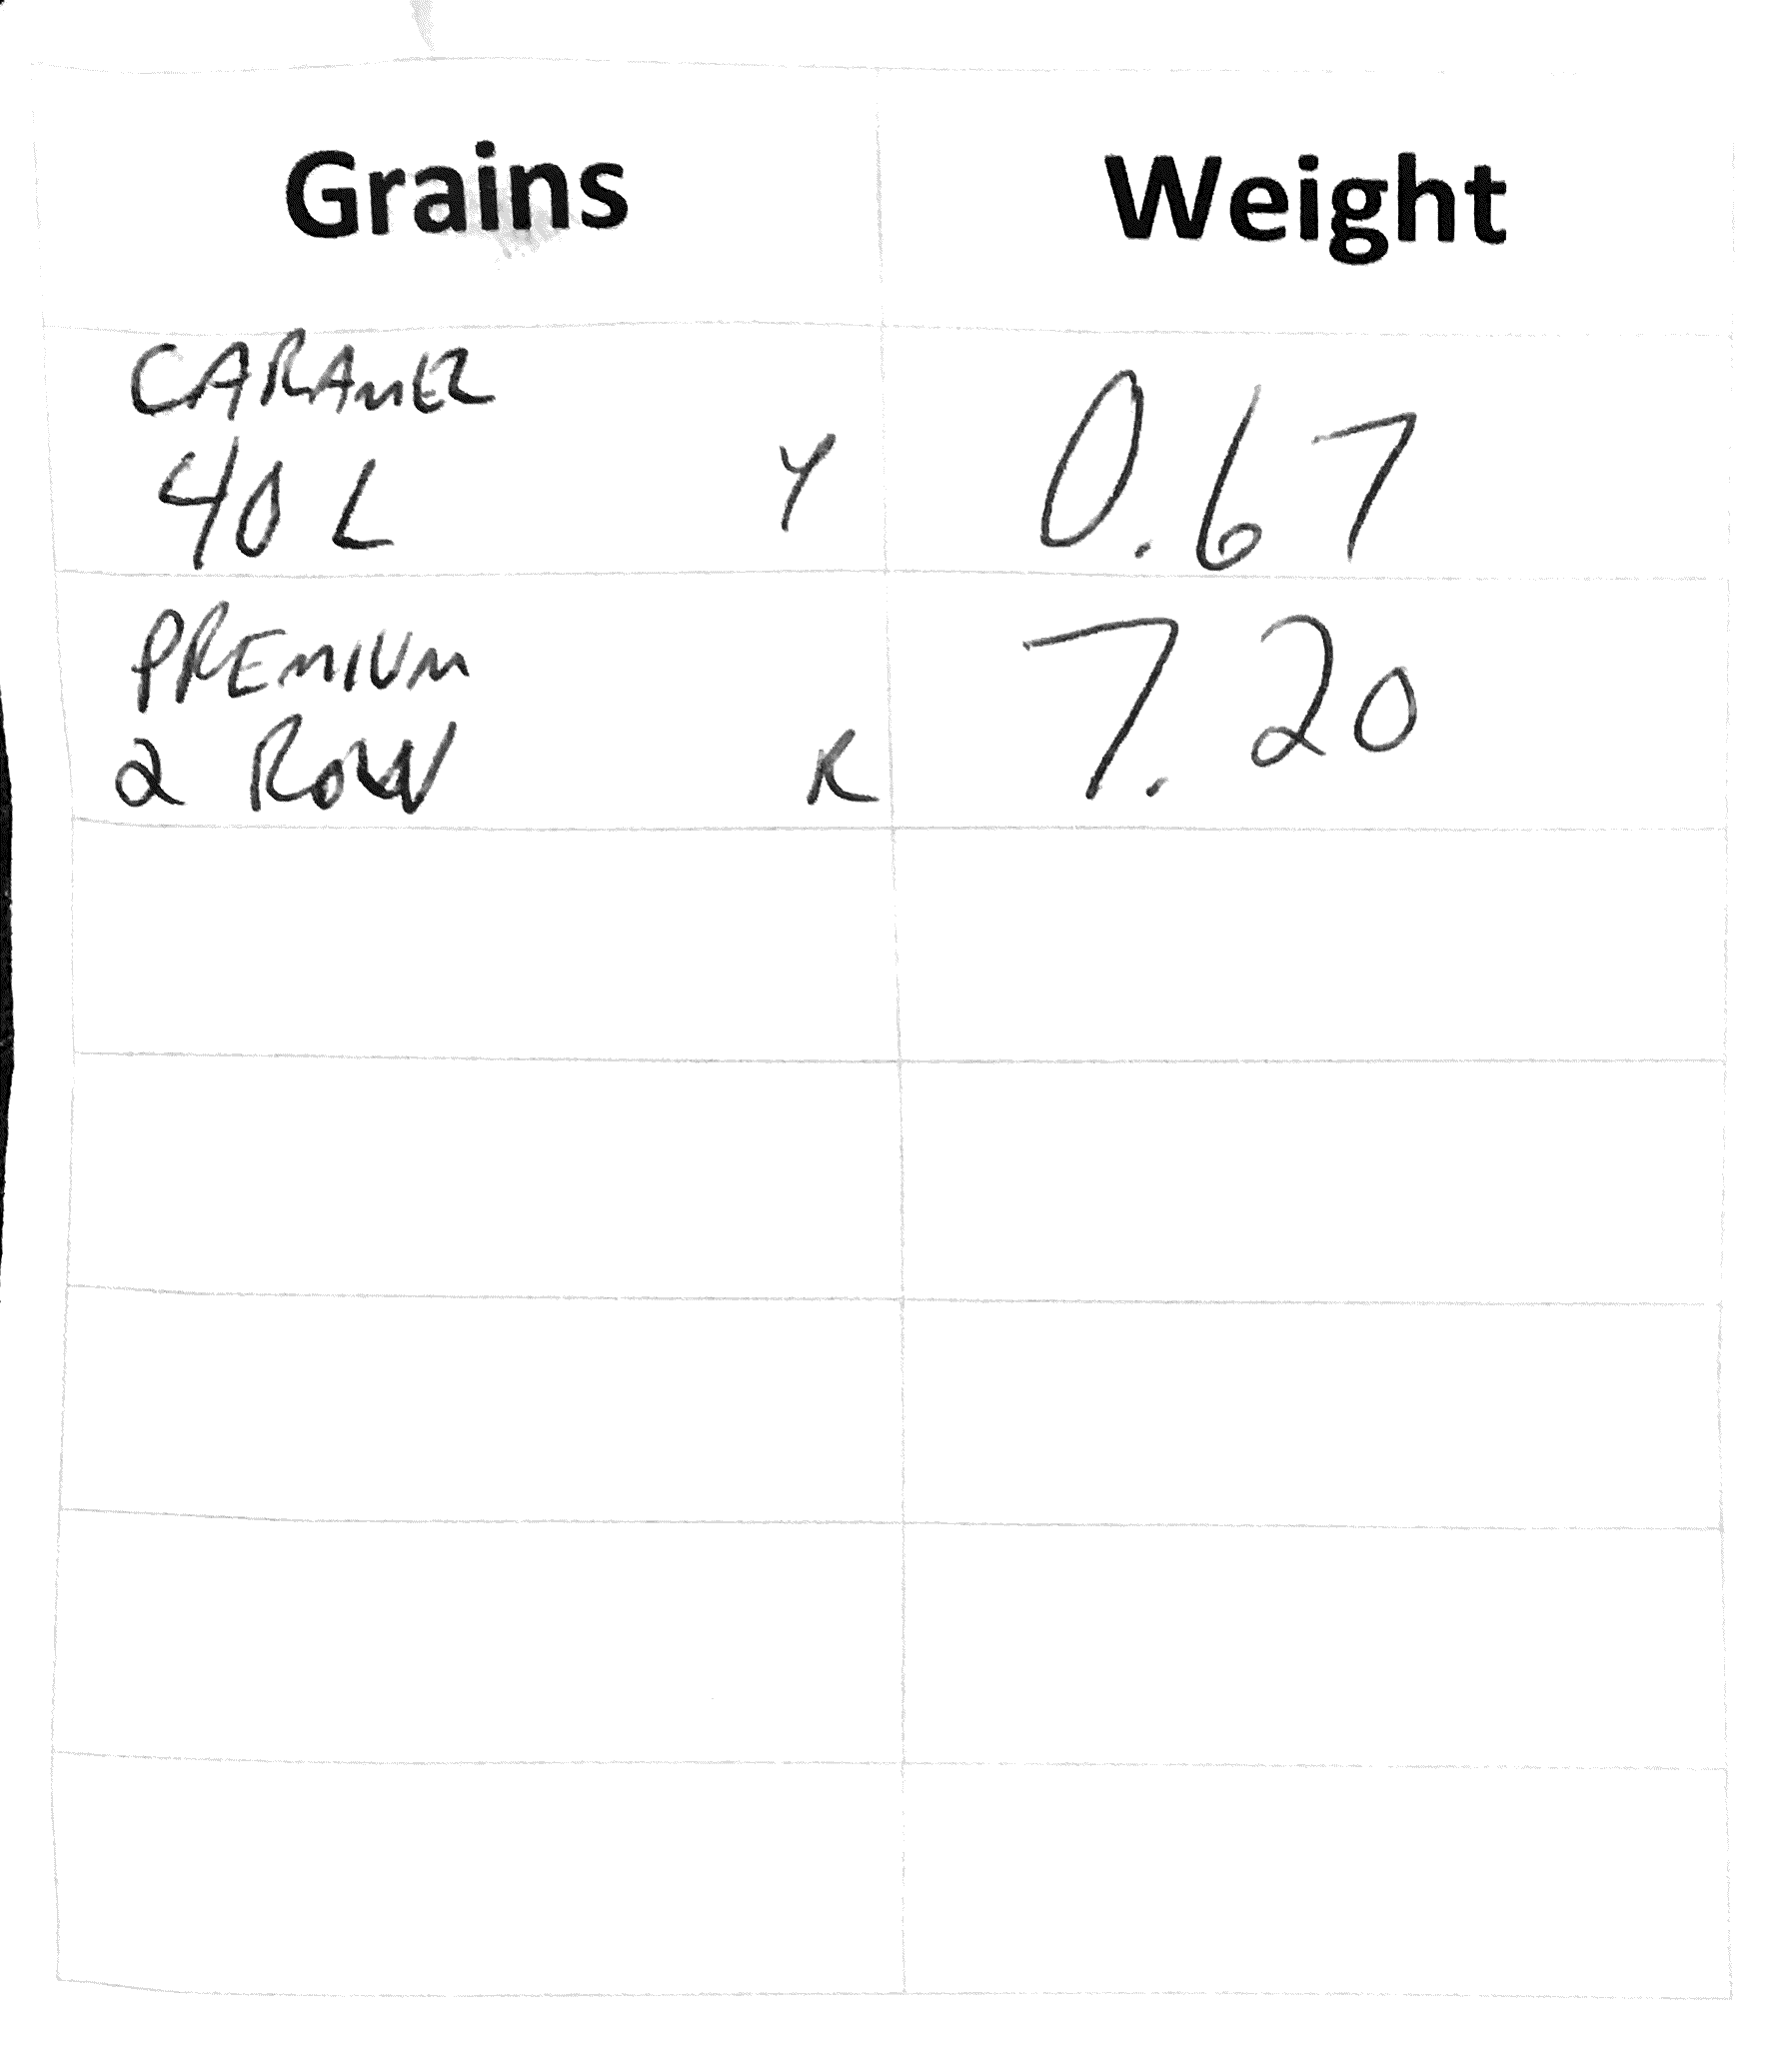 Grains Weight
CARAMEL
40 L Y 0.67
PREMIUM
2 ROW K 7.20